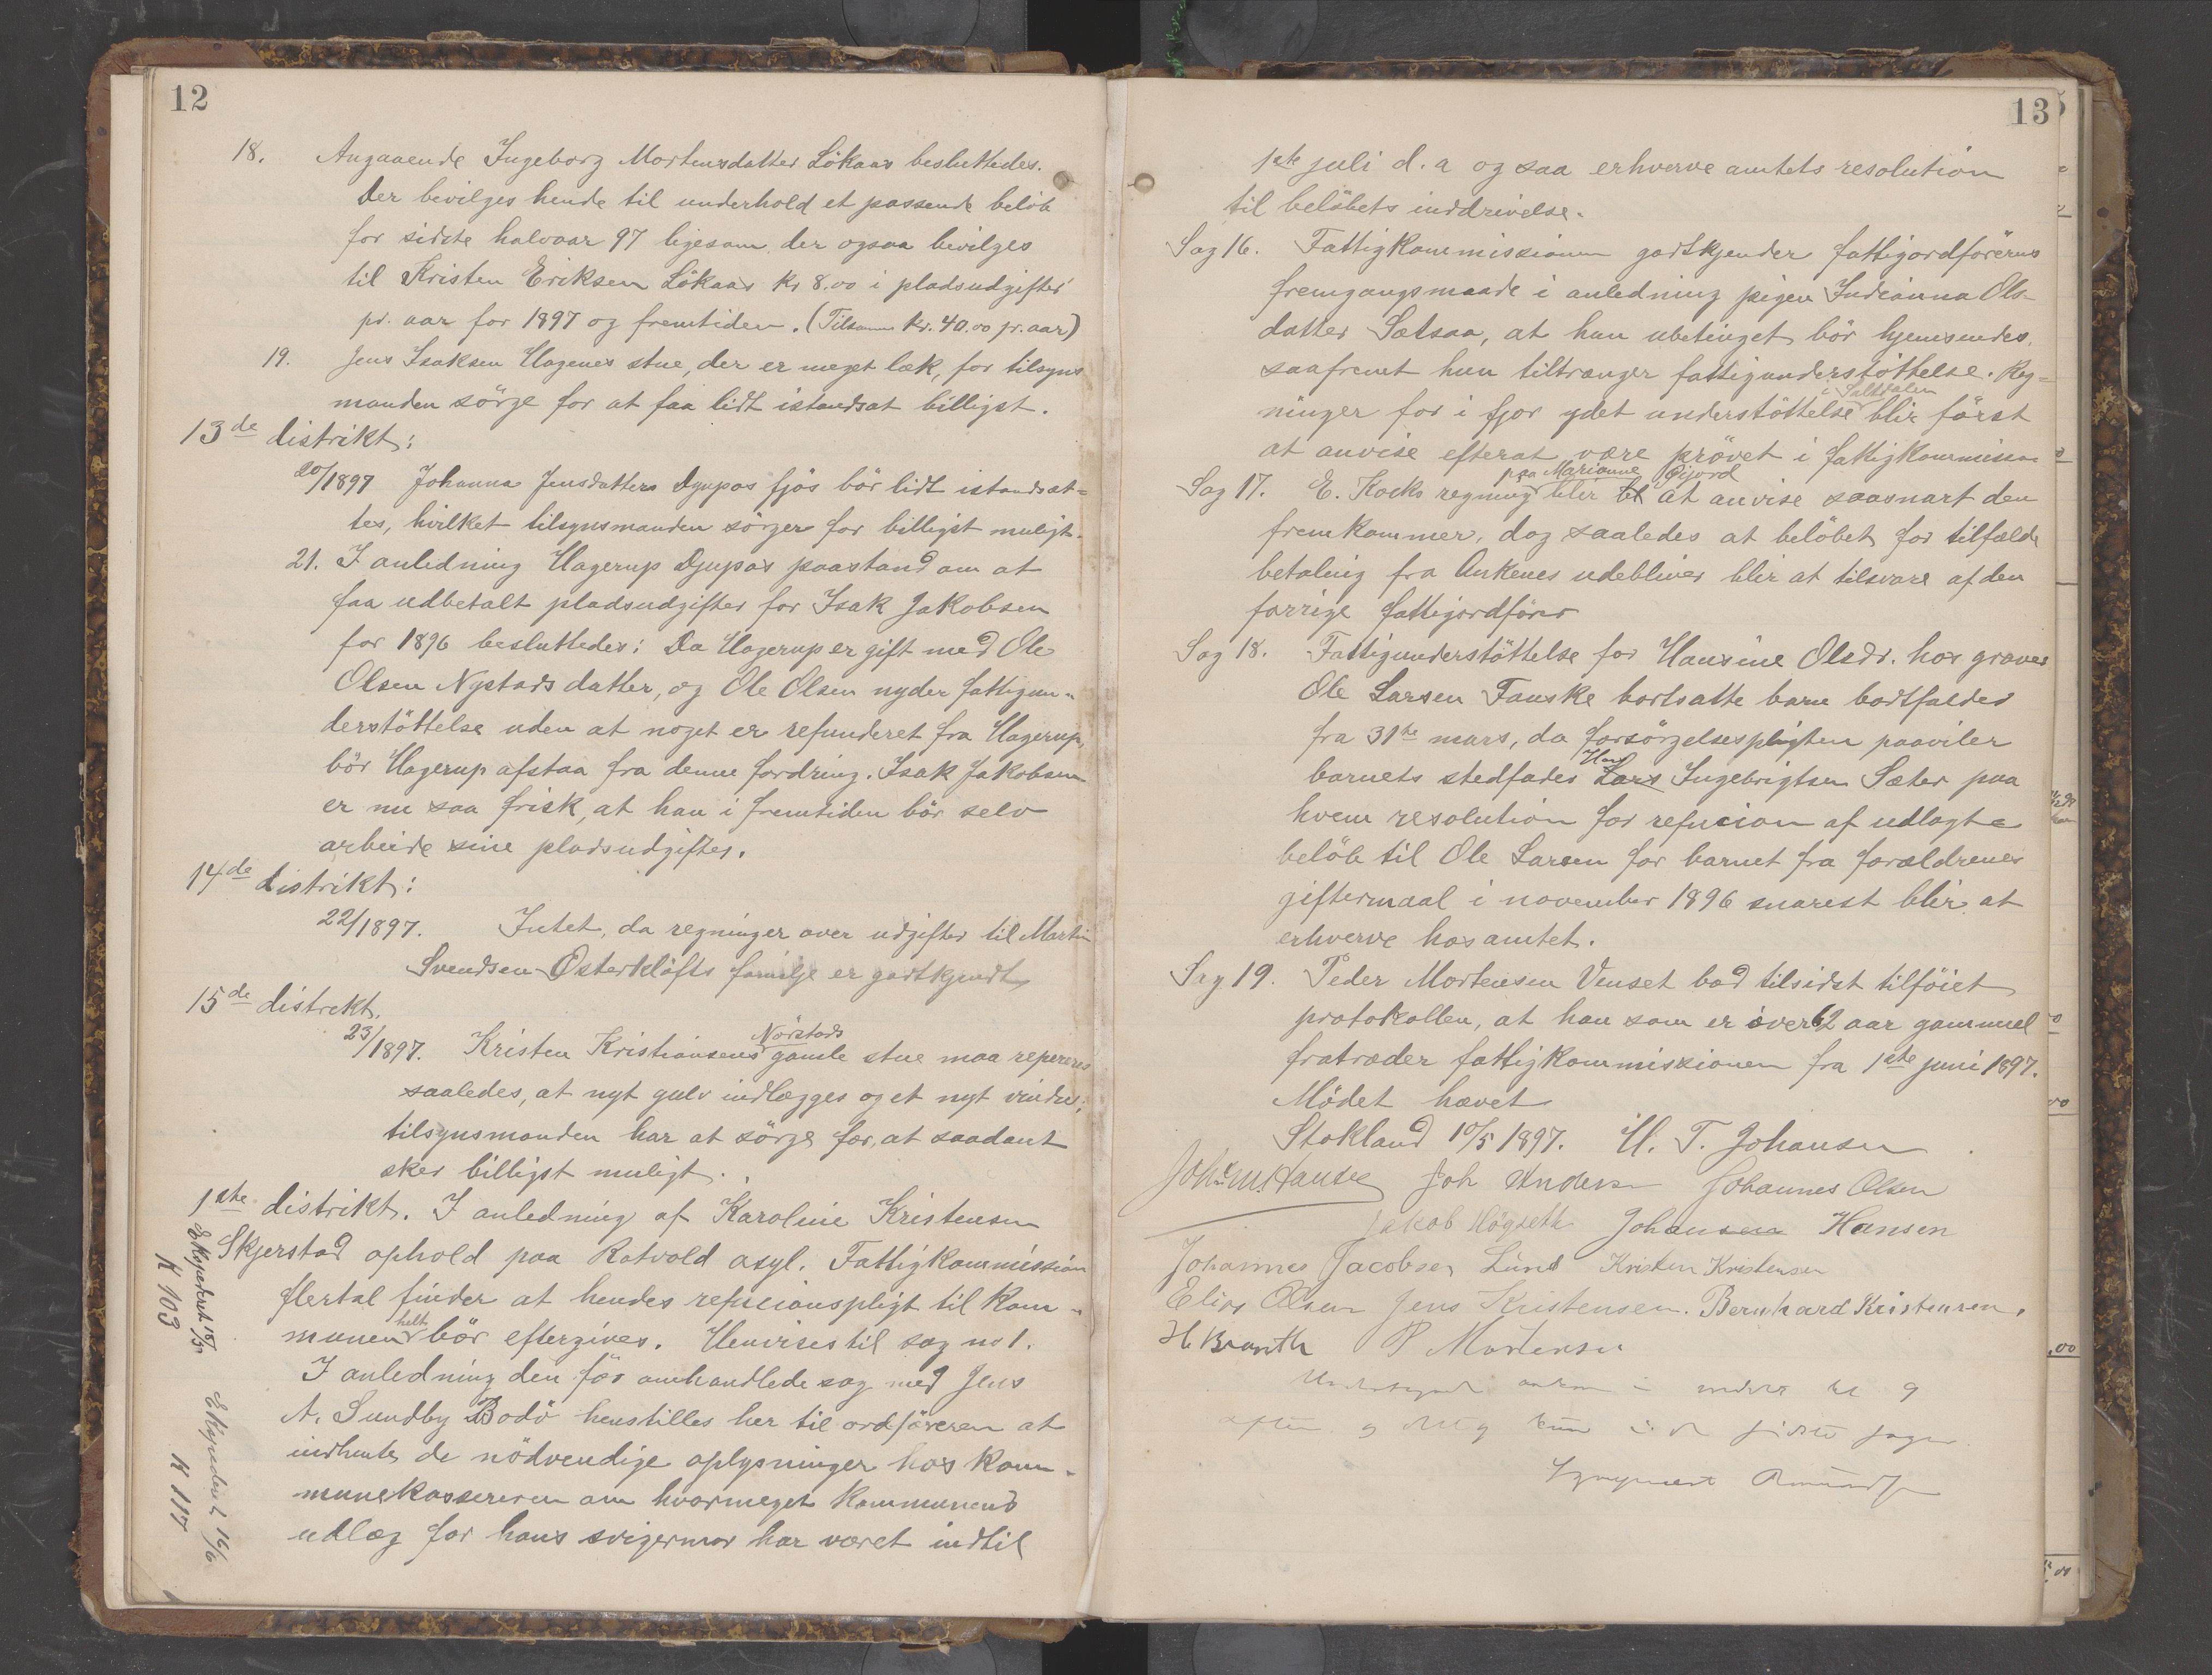 12
18. Angaaende Ingeborg Mortensdatter Lökaas besluttedes.
Der bevilges hende til underhold et passende belöb
for sidste halvaar 97 ligesom der ogsaa bevilges
til Kristen Eriksen Lökaas kr 8.00 i pladsudgifter
pr. aar for 1897 og fremtiden. (Tilsamm Kr. 40.00 pr. aar)
19. Jens Isaksen Hagenes stue, der er meget læk, for tilsyns
manden sörge for at faa lidt istandsat billigst.
13de distrikt:
20/1897 Johanna Jensdatters Djupos fjös bör lidt istandsæt=
tes, hvilket tilsynsmanden sörger for billigst muligt.
21. I anledning Hagerup Djupos paastand om at
faa udbetalt pladsudgifter for Isak Jakobsen
for 1896 besluttedes: Da Hagerup er gift med Ole
Olsen Nystads datter, og Ole Olsen nyder fattigun=
derstöttelse uden at noget er refunderet fra Hagerup,
bör Hagerup afstaa fra denne fordring. Isak Jakobsen
er nu saa frisk, at han i fremtiden bör selv
arbeide sine pladsudgifter.
14de distrikt:
22/1897. Intet, da regninger over udgifter til Martin
Svendsen Österklöfts familje er godtkjendt
15de distrikt.
23/1897. Kristen Kristiansens Nörstads gamle stue maa repereres
saaledes, at nyt gulv indlægges og et nyt vindu;
tilsynsmanden har at sörge for, at saadant
sker billigst muligt.
1ste distrikt. I anledning af Karoline Kristensen
Skjerstad ophold paa Rotvold asyl. Fattigkommission
flertal finder at hendes refucionspligt til kom=
munen helt bör eftergives. Henvises til sag no 1.
I anledning den för omhandlede sag med Jens
A. Sundby Bodö henstilles her til ordföreren at
indhente de nödvendige oplysninger hos kom=
munekassereren om hvormeget kommunens
udlæg for hans svigermor har været indtil
K 103
K 117
13
1ste juli d.a og saa erhverve amtets resolution
til belöbets inddrivelse.
Sag 16. Fattigkommissionen godtkjender fattigordförerens
fremgangsmaade i anledning pigen Indianna Ols-
datter Sætsaa, at hun ubetinget bör hjemsendes,
saafremt hun tiltrænger fattigunderstöttelse. Reg=
ninger for i fjor ydet understöttelse i Saltdalen blir först
at anvise efterat være prövet i fattigkommission
Sag 17. E. Kocks regning paa Marianne Öijord blir at anvise saasnart den
fremkommer, dog saaledes at belöbet for tilfælde
betaling fra Ankenes udebliver blir at tilsvare af den
forrige fattigordförer
Sag 18. Fattigunderstöttelse for Hansine Olsdr. hos graver
Ole Larsen Fauske bortsatte barn bortfalder
fra 31te mars, da forsörgelsespligten paaviler
barnets stedfader Hans Ingebrigtsen Sæter paa
hvem resolution for refucion af udlagte
belöb til Ole Larsen for barnet fra forældrenes
giftermaal i november 1896 snarest blir at
erhverve hos amtet.
Sag 19. Peder Mortensen Venset bad tilsidst tilföiet
protokollen, at han som er över 62 aar gammel
fratræder fattigkommissionen fra 1ste juni 1897.
Mödet hævet
Stokland 10/5 1897. H. T. Johansen
Joh. M. Hansen Joh Anders Johannes Olsen
Jakob Högseth Johansen Hansen
Johannes Jacobsen Lund Kristen Kristensen
Elias Olsen Jens Kristensen. Bernhard Kristensen.
H Branth P Mortensen